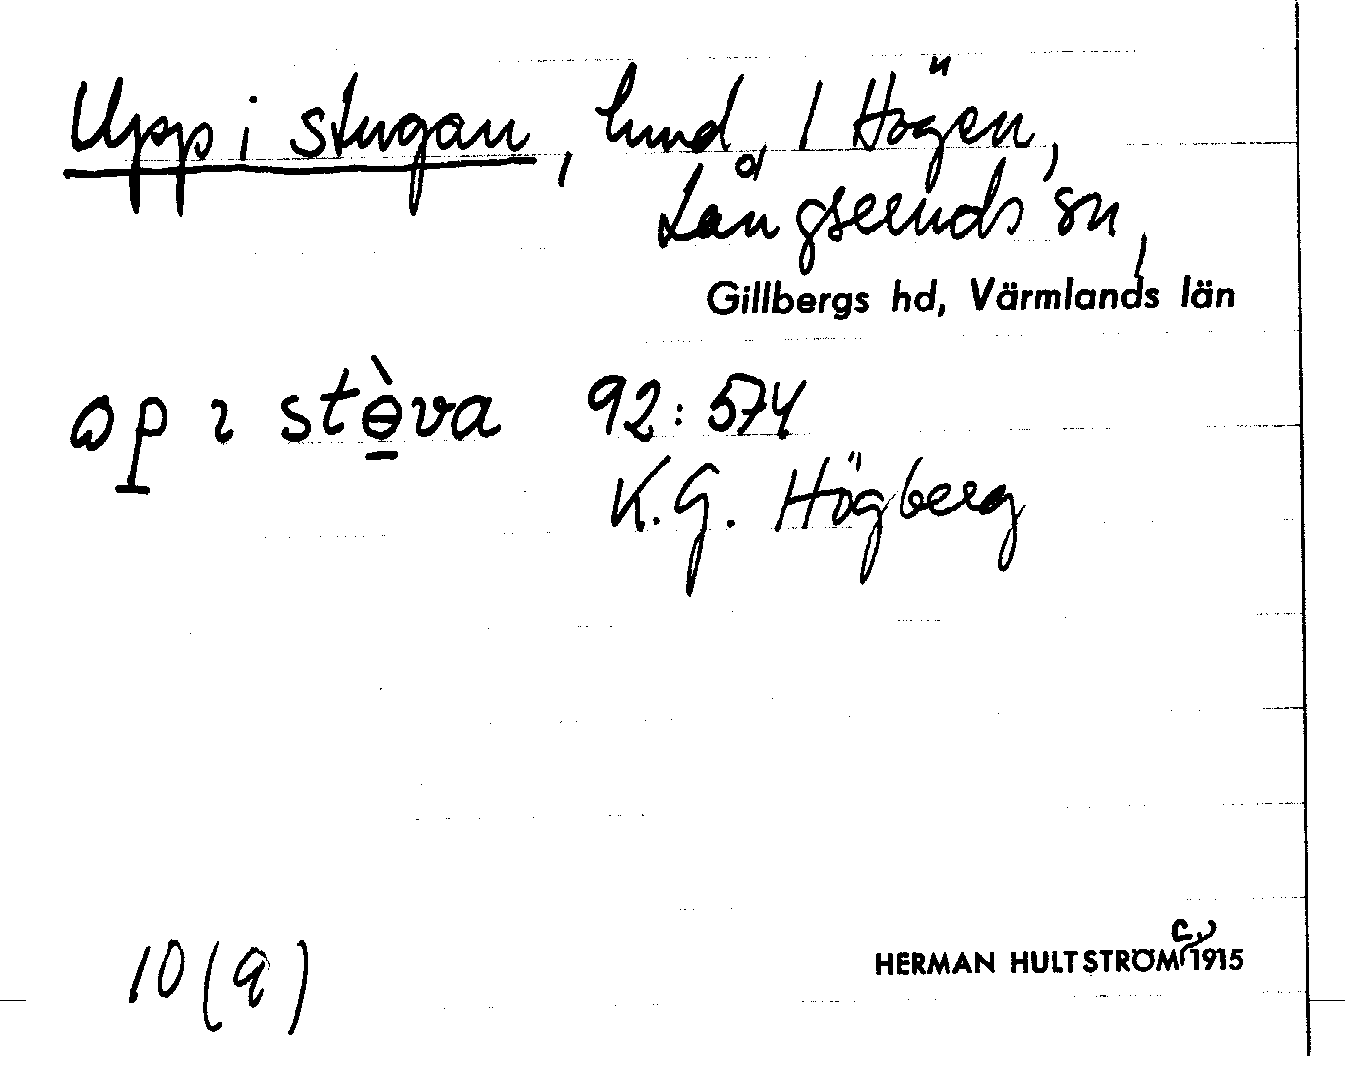 Upp i stugan, lund, 1 Högen,
Långseruds sn,
Gillbergs hd, Värmlands län
op ı stɵ̠̀va 92:574
K.G. Högberg
10 (a)
c.
HERMAN HULTSTRÖM 1915